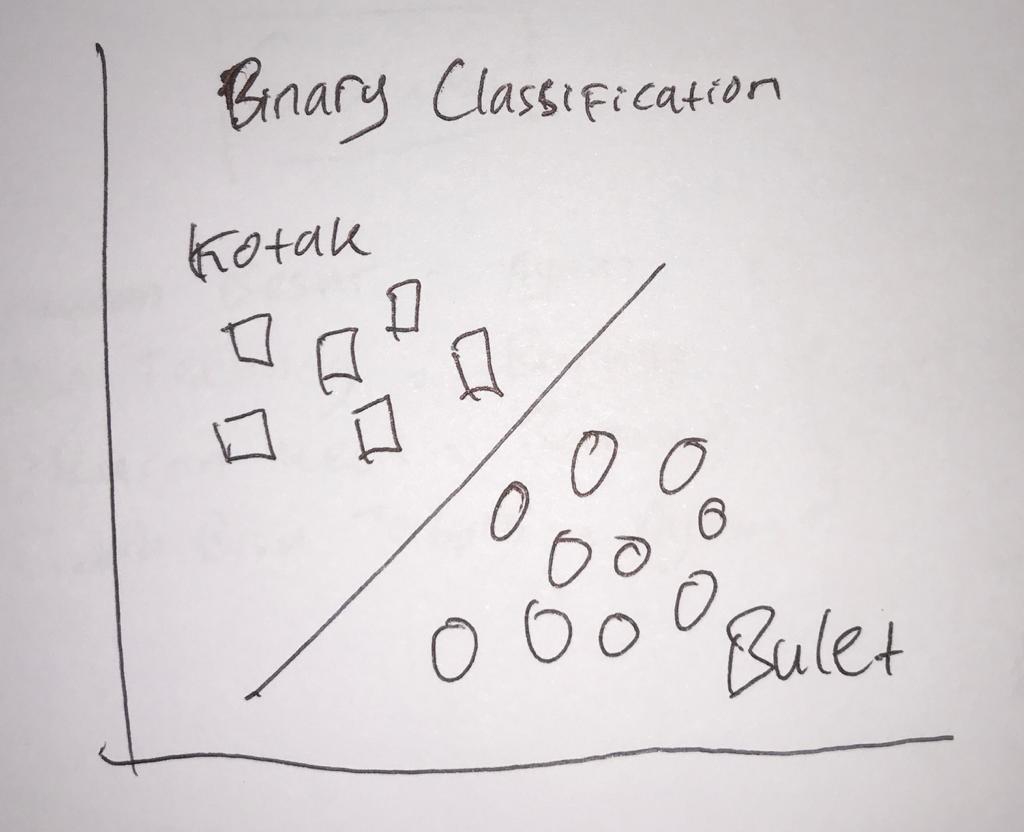 Binary Classification
Kotak
Bulet